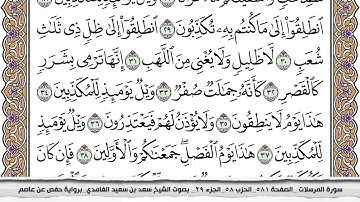 ٱنطَلِقُوٓا۟ إِلَىٰ مَا كُنتُم بِهِۦ تُكَذِّبُونَ ٢٩ ٱنطَلِقُوٓا۟ إِلَىٰ ظِلٍّ ذِى ثَلَٰثِ
شُعَبٍ ٣٠ لَّا ظَلِيلٍ وَلَا يُغْنِى مِنَ ٱللَّهَبِ ٣١ إِنَّهَا تَرْمِى بِشَرَرٍ
كَٱلْقَصْرِ ٣٢ كَأَنَّهُۥ جِمَٰلَتٌ صُفْرٌ ٣٣ وَيْلٌ يَوْمَئِذٍ لِّلْمُكَذِّبِينَ ٣٤
هَٰذَا يَوْمُ لَا يَنطِقُونَ ٣٥ وَلَا يُؤْذَنُ لَهُمْ فَيَعْتَذِرُونَ ٣٦ وَيْلٌ يَوْمَئِذٍ
لِّلْمُكَذِّبِينَ ٣٧ هَٰذَا يَوْمُ ٱلْفَصْلِ جَمَعْنَٰكُمْ وَٱلْأَوَّلِينَ ٣٨ فَإِن كَانَ
سورة المرسلات _ الصفحة ٥٨١_ الحزب ٥٨_ الجزء ٢٩ _ بصوت الشيخ سعد بن سعيد الغامدي برواية حفص عن عاصم